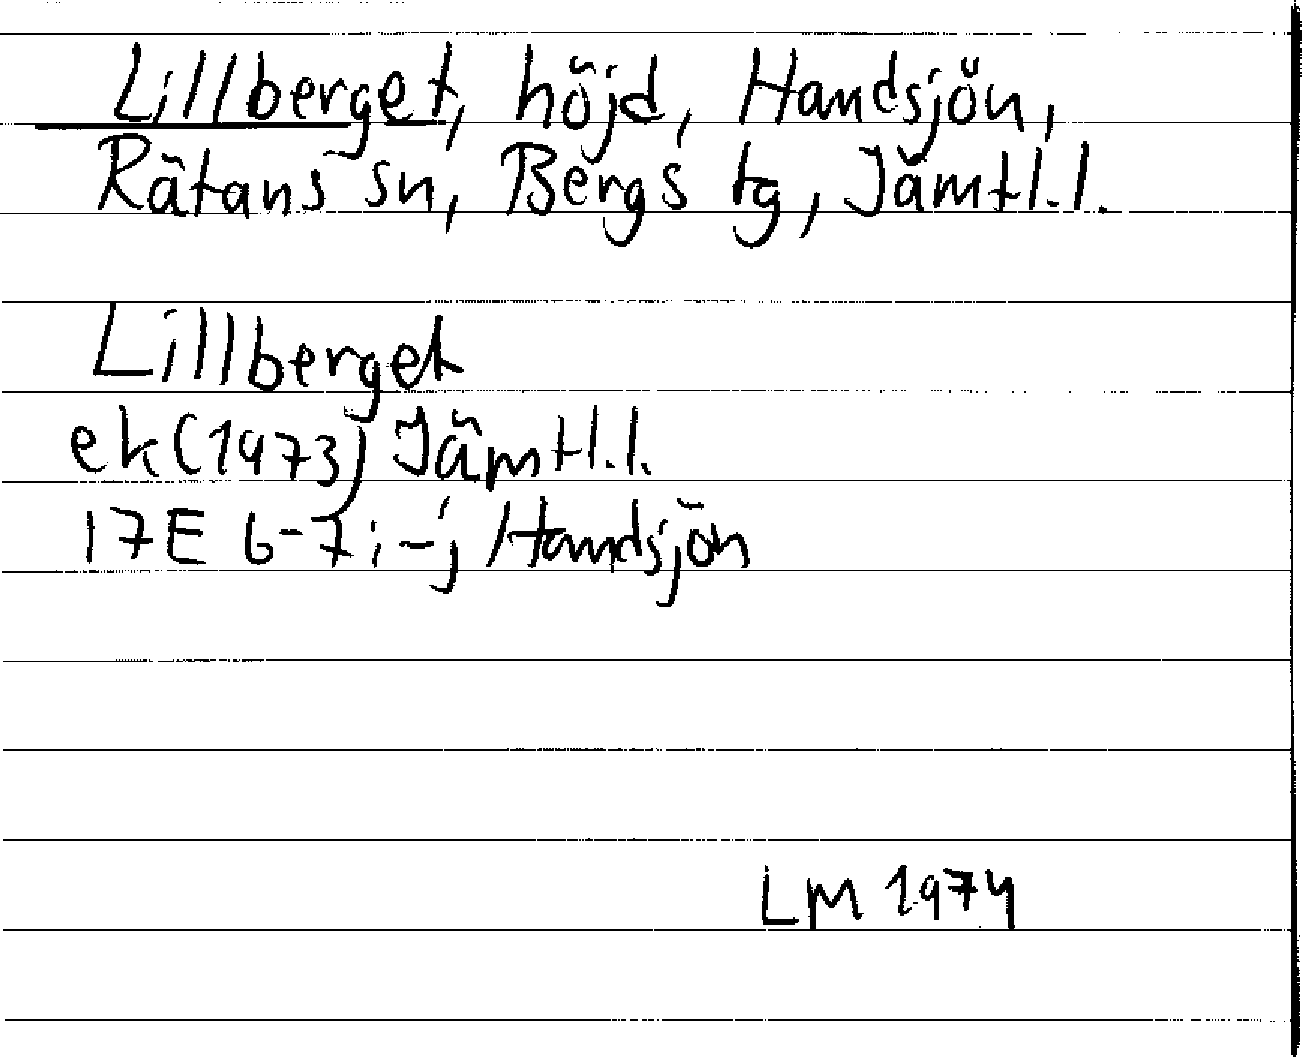 Lillberget, höjd, Handsjön,
Rätans sn, Bergs tg, Jämtl.l.
Lillberget
ek (1973) Jämtl.l.
17E 6-7 i-j Handsjön
LM 1974